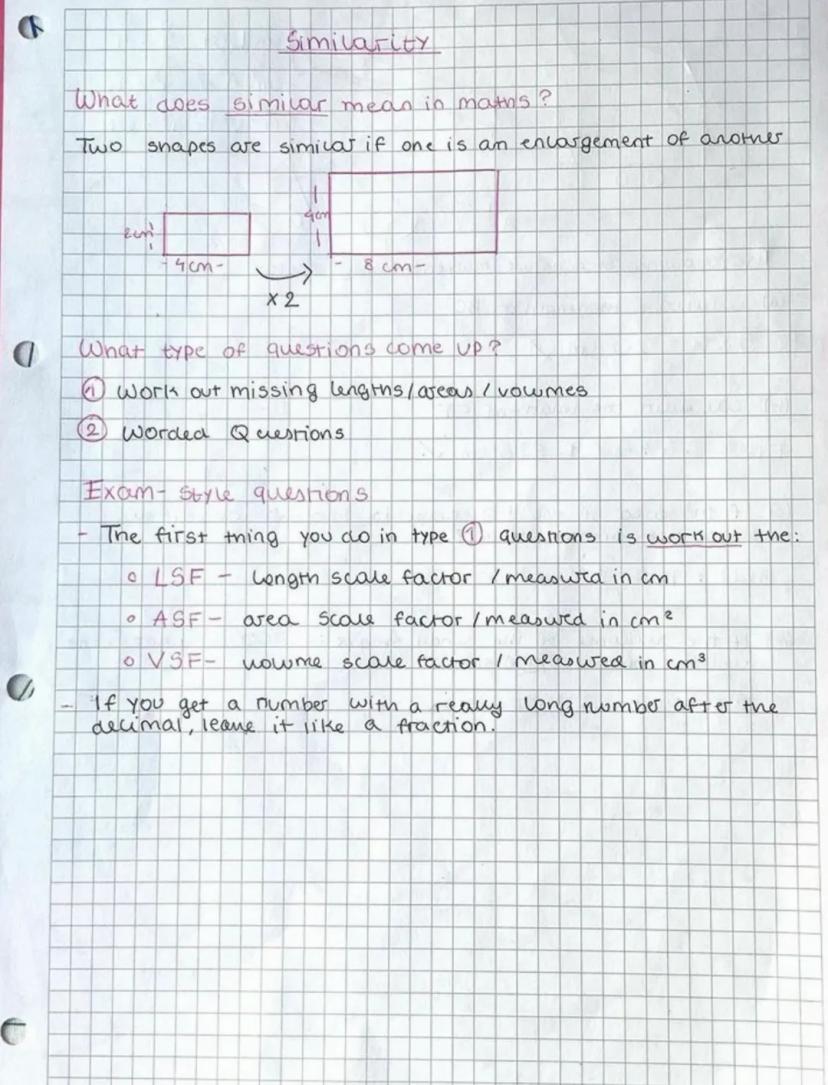 Similarity
What does similar mean in maths?
Two shapes are similar if one is an enlargement of another
2cm
4cm
4cm
8 cm
x 2
What type of questions come up?
① Work out missing lengths/areas / volumes
② Worded Questions
Exam-style questions
- The first thing you do in type ① questions is work out the:
o LSF - Length scale factor / measured in cm
o ASF - area scale factor / measured in cm²
o VSF - volume scale factor / measured in cm³
- If you get a number with a really long number after the
decimal, leave it like a fraction.